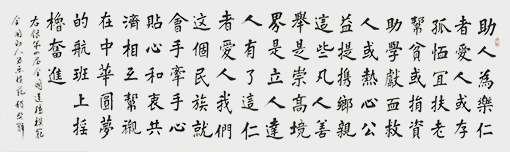 助人為樂仁
者愛人或存
孤恤宜扶老
幫貧救資
助學獻捐
人或熱心公
益提攜鄉親
這些凡人善
舉是崇高境
界
人有了這仁
者愛人我們
這個民族就
會手牽手
貼心和衷共
濟相互幫襯
在中華圓夢
的航班上搖
櫓奮進
全國道德模範